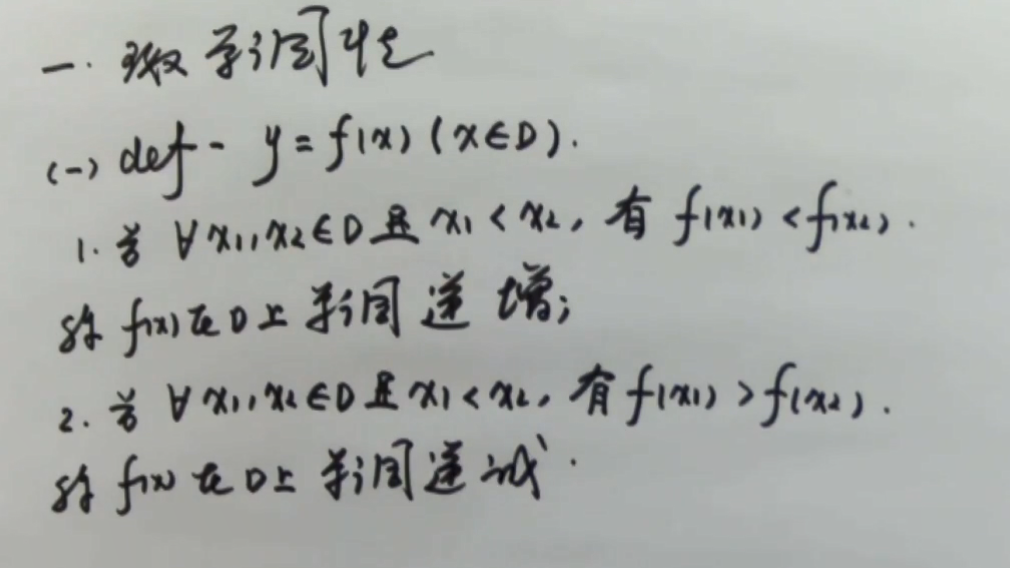 一. 函数单调性
(一) def - y = f(x) (x∈D).
1. 若 ∀x₁,x₂∈D 且 x₁ < x₂, 有 f(x₁) < f(x₂).
称 f(x) 在 D 上 单调 递 增;
2. 若 ∀x₁,x₂∈D 且 x₁ < x₂, 有 f(x₁) > f(x₂).
称 f(x) 在 D 上 单调 递 减.